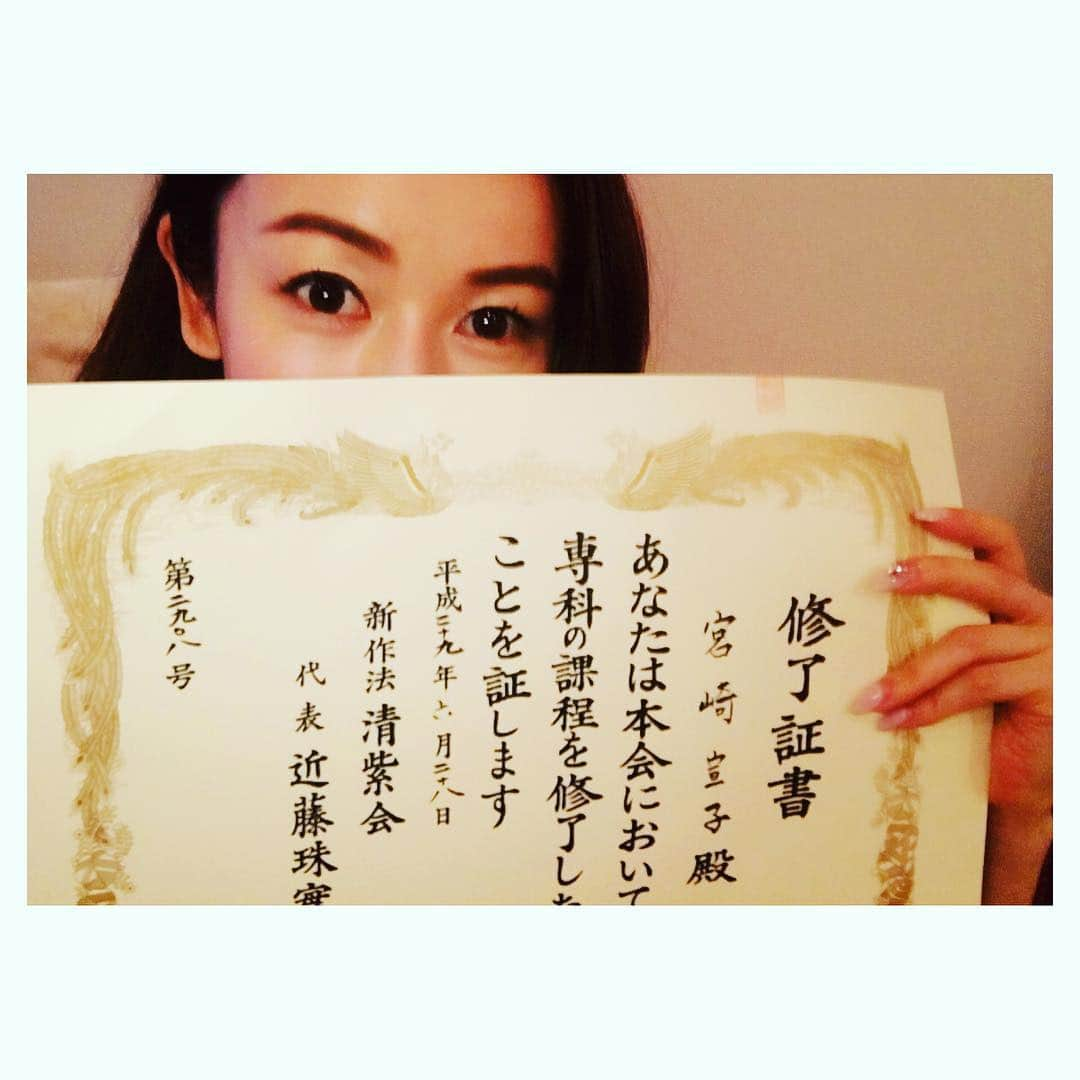 修了証書
宮崎宣子殿
あなたは本会において
専科の課程を修了した
ことを証します
平成二十九年六月二十八日
新作法清紫会
代表 近藤珠實
第二九〇八号